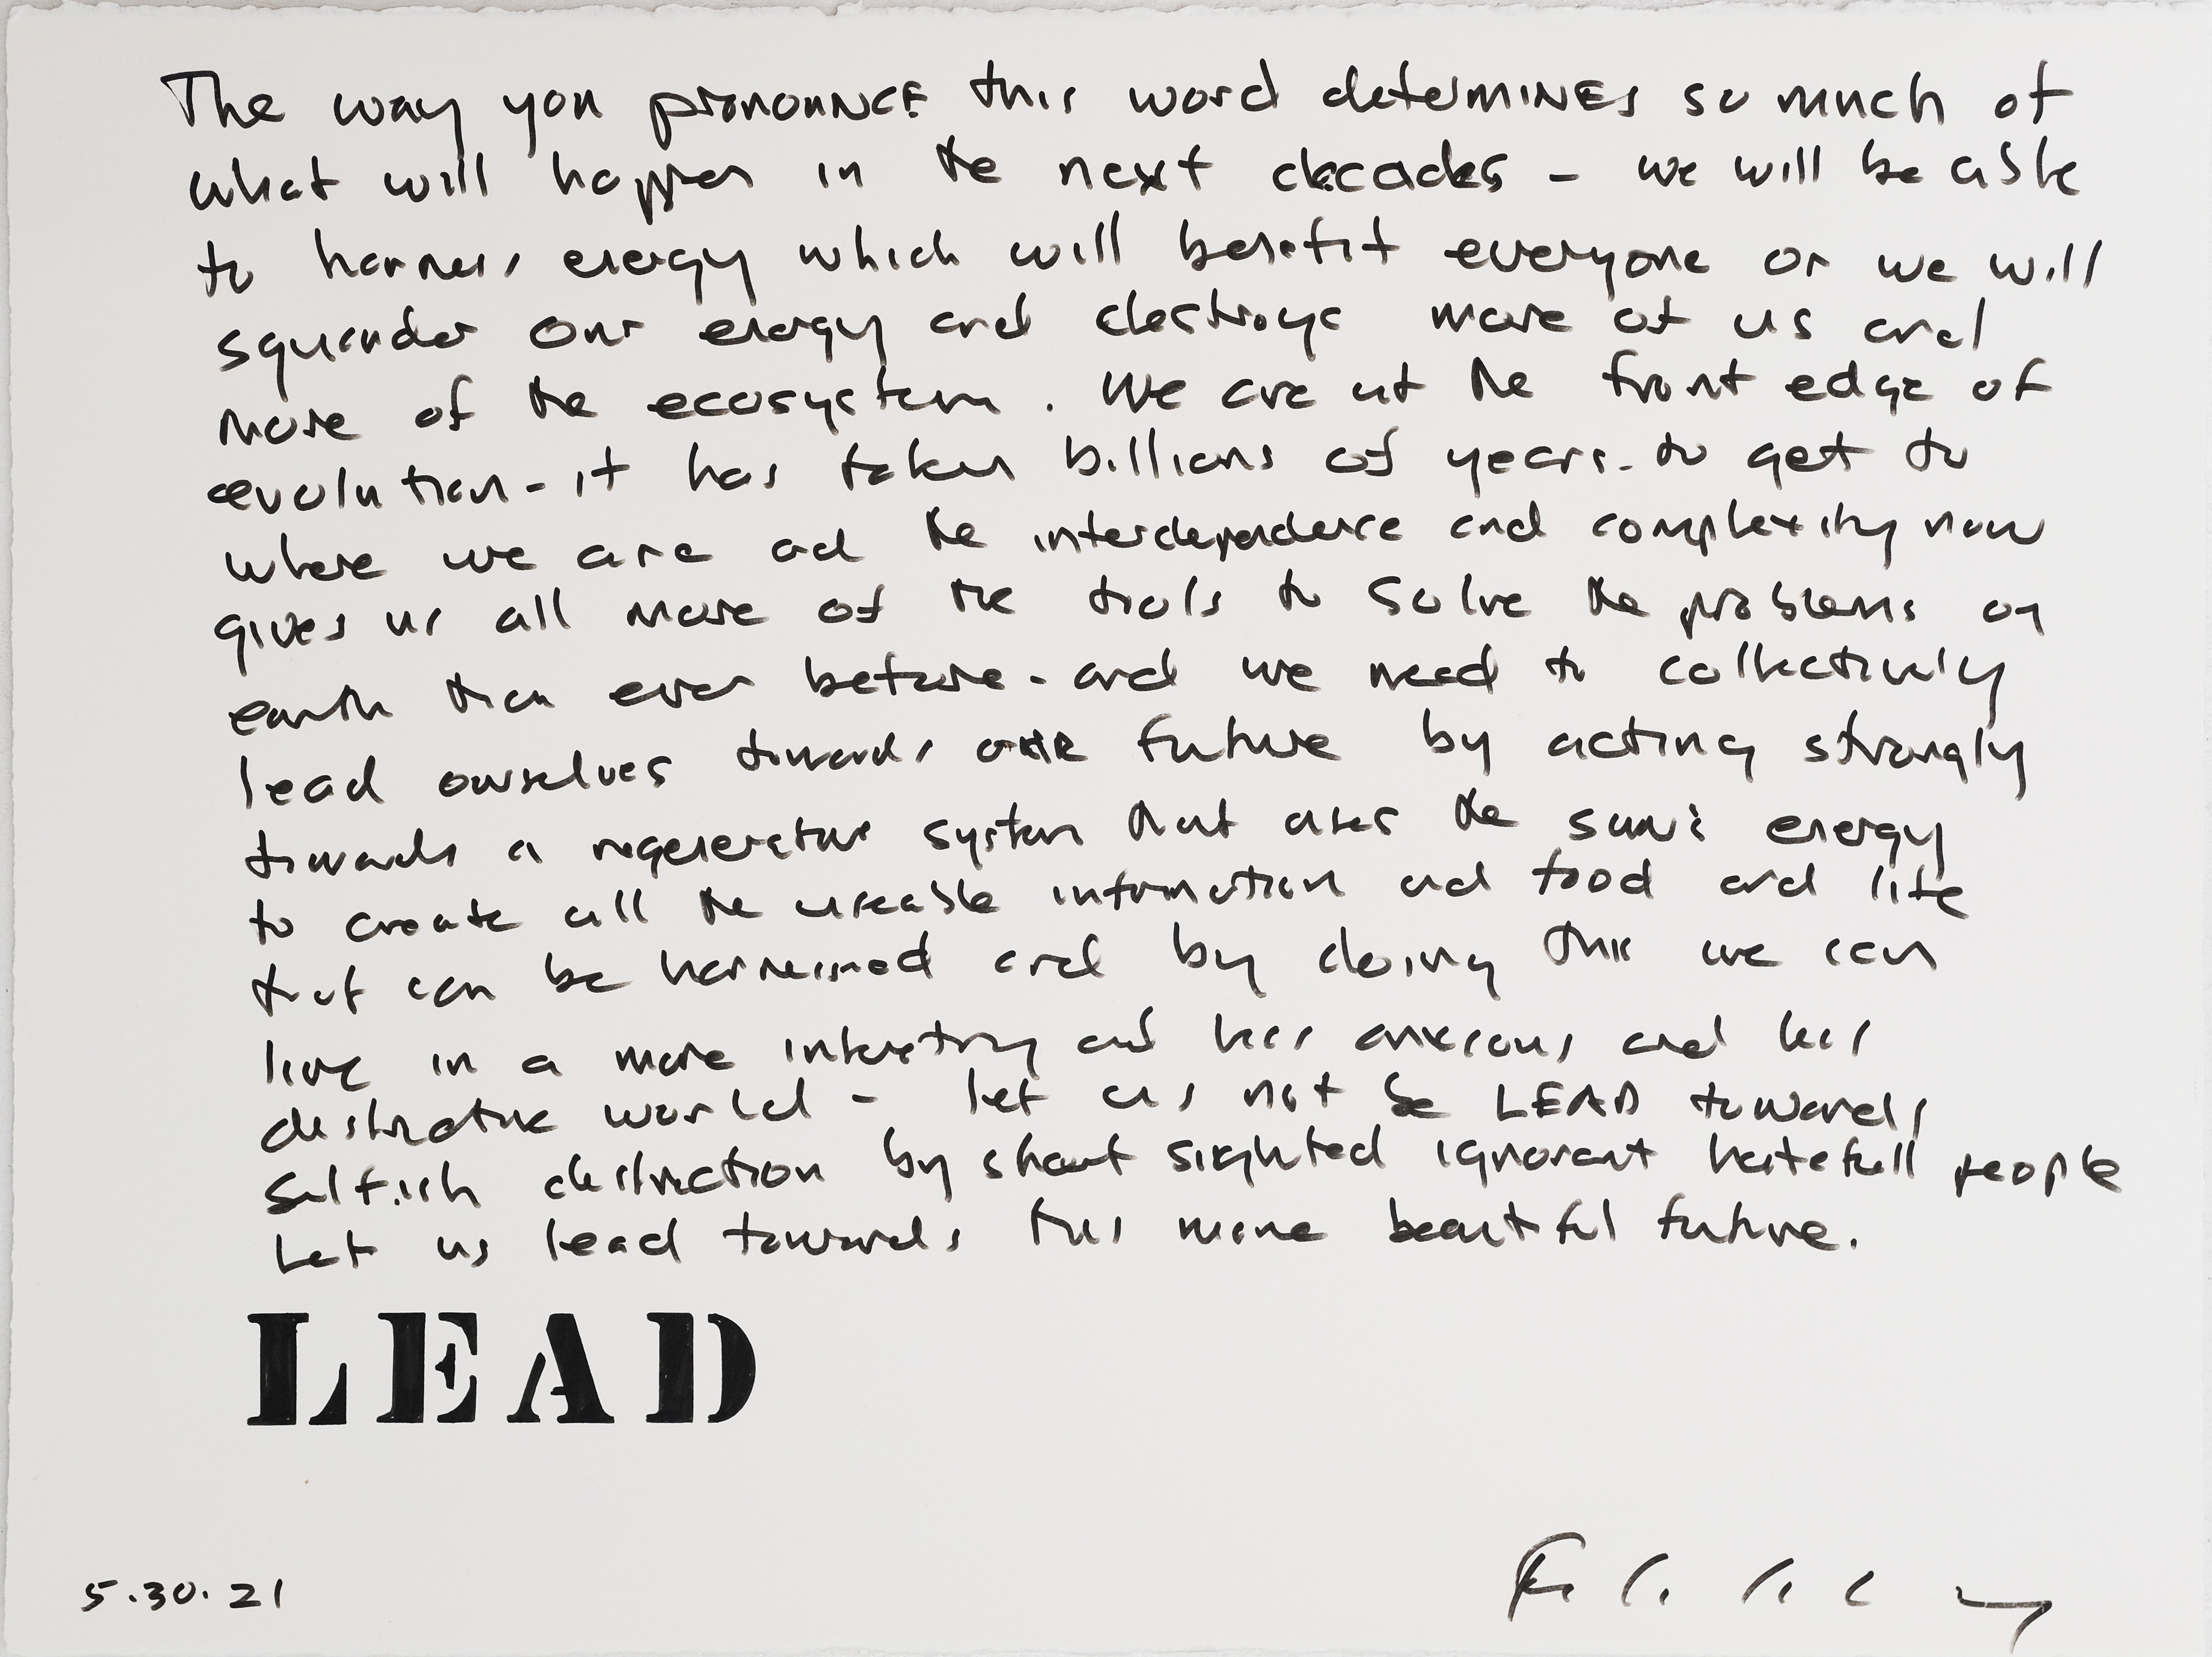 The way you pronounce this word determines so much of
what will happen in the next decades - we will be able
to harness energy which will benefit everyone or we will
squander our energy and destroye more of us and
more of the ecosystem. We are at the front edge of
evolution - it has taken billions of years to get to
where we are and the interdependence and complexity now
gives us all more of the tools to solve the problems on
earth than ever before - and we need to collectively
lead ourselves towards our future by acting strongly
towards a regenerative system that uses the sun's energy
to create all the useable information and food and life
that can be harnessed and by doing this we can
live in a more interesting and less anxious and less
destructive world - let us not be LEAD towards
selfish destruction by short sighted ignorant hatefull people
Let us lead towards this more beautiful future.
LEAD
5.30.21